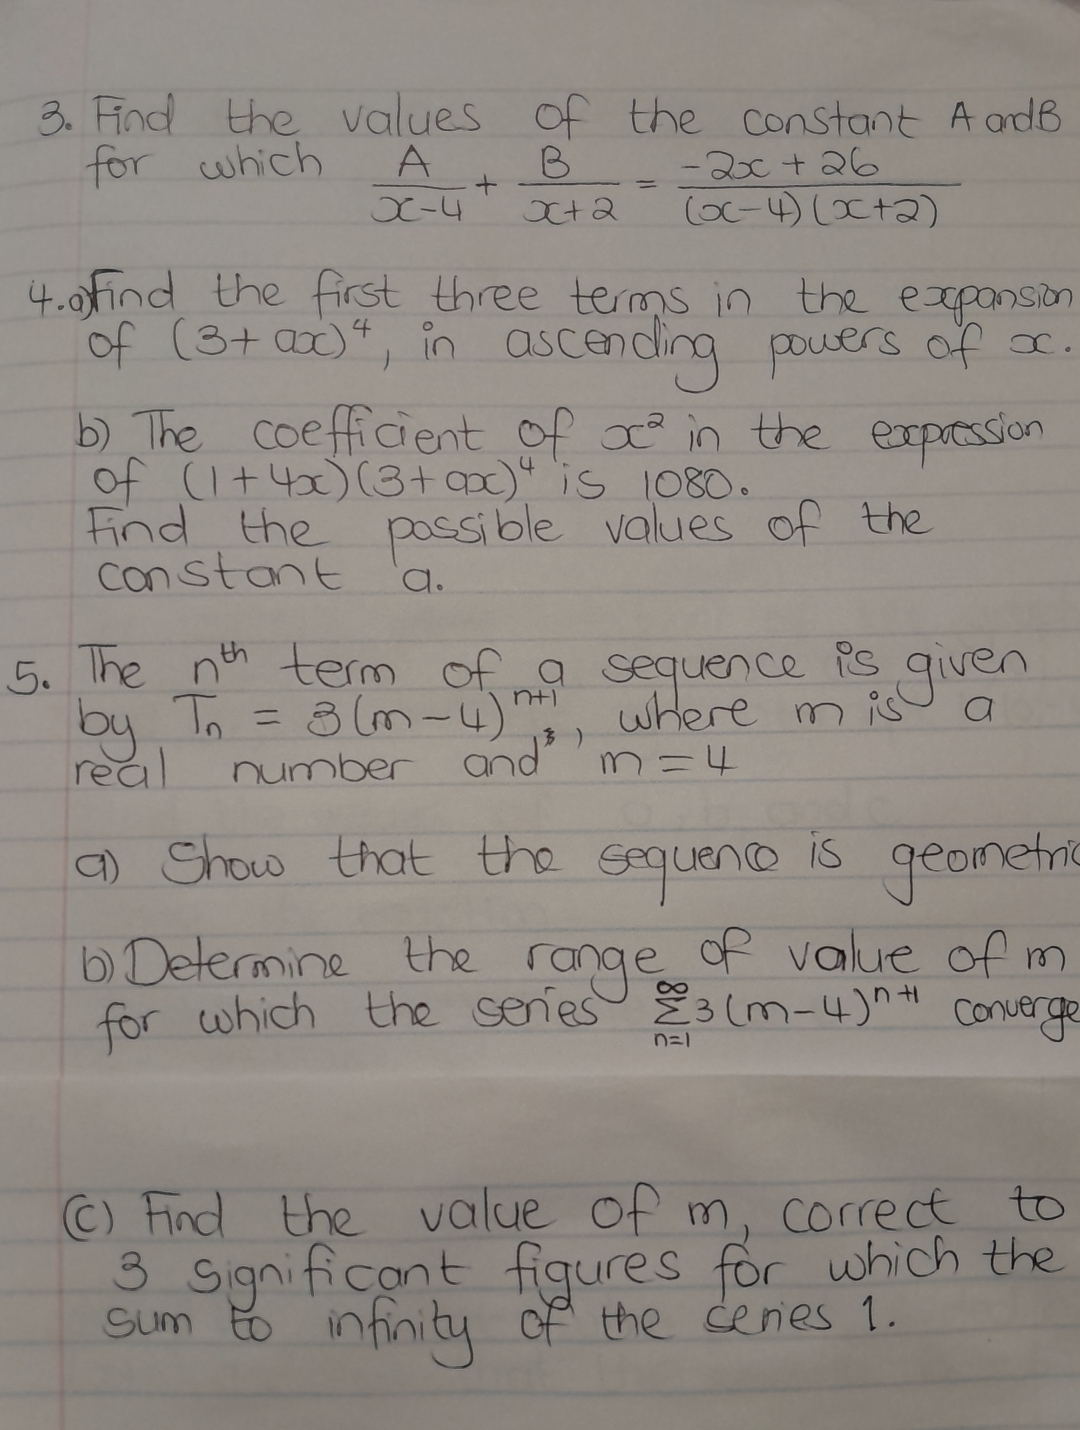 3. Find the values of the constant A and B
for which A/(x-4) + B/(x+2) = (-2x + 26)/((x-4)(x+2))
4.a) Find the first three terms in the expansion
of (3 + ax)⁴, in ascending powers of x.
b) The coefficient of x² in the expression
of (1 + 4x)(3 + ax)⁴ is 1080.
Find the possible values of the
constant a.
5. The nᵗʰ term of a sequence is given
by Tₙ = 3(m-4)ⁿ⁺¹, where m is a
real number and m = 4
a) Show that the sequence is geometric
b) Determine the range of value of m
for which the series ∞ Σ n=1 3(m-4)ⁿ⁺¹ converge
(c) Find the value of m, correct to
3 significant figures for which the
sum to infinity of the series 1.